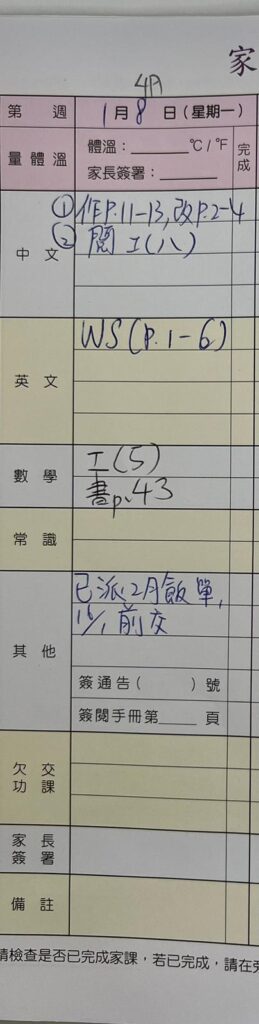 家
4A
第 週 1月8日(星期一)
量體溫 體溫:________°C/°F 完成
家長簽署:________
中文 ①作P.11-13,改P.2-4
② 簡工(八)
英文 WS(P.1-6)
數學 工(5)
書p.43
常識
其他 已派2月飯單,
16/1前交
簽通告( )號
簽閱手冊第____頁
欠交功課
家長簽署
備註
請檢查是否已完成家課,若已完成,請在